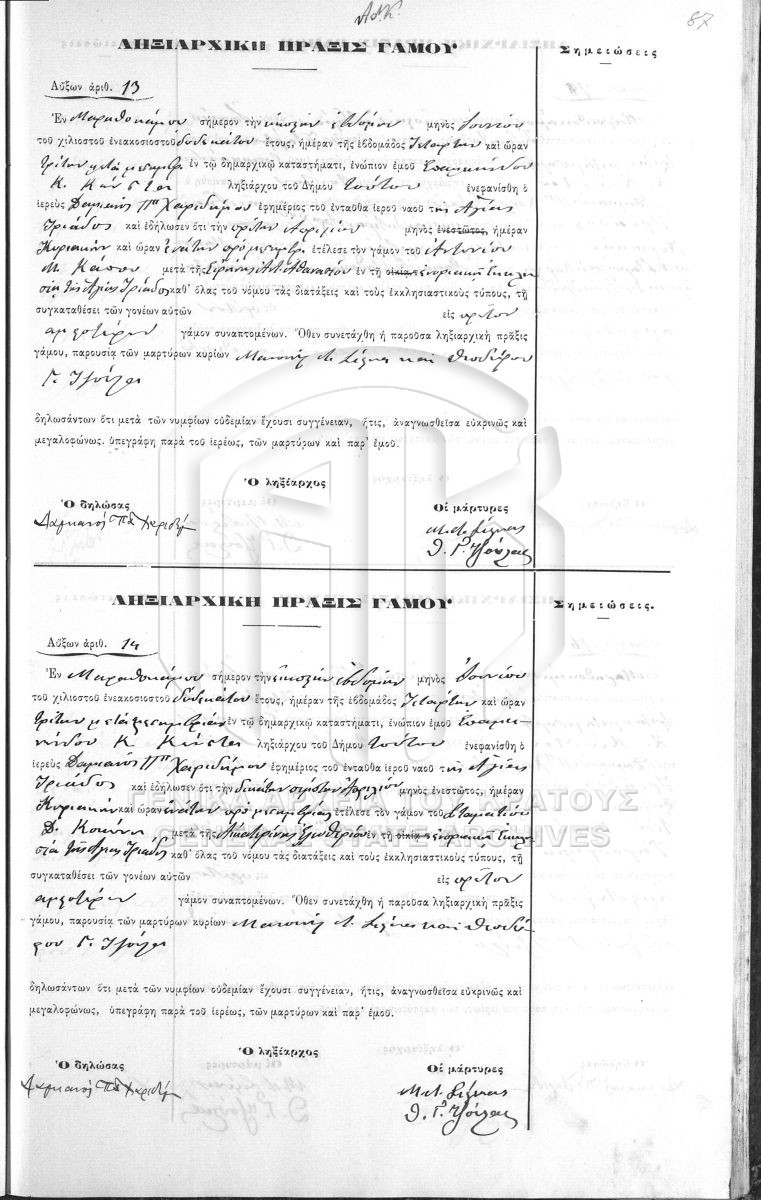 87
ΛΗΞΙΑΡΧΙΚΗ ΠΡΑΞΙΣ ΓΑΜΟΥ
Σημειώσεις
Αὔξων ἀριθ. 13
Ἐν Μαραθοκάμπῳ σήμερον τὴν εἰκοστὴν ἑβδόμην μηνὸς Ἰουνίου
τοῦ χιλιοστοῦ ἐνεακοσιοστοῦ δωδεκάτου ἔτους, ἡμέραν τῆς ἑβδομάδος Τετάρτην καὶ ὥραν
τρίτην μετὰ μεσημβρ. ἐν τῷ δημαρχικῷ καταστήματι, ἐνώπιον ἐμοῦ Ἐπαμεινώνδου
Κ. ληξιάρχου τοῦ Δήμου τούτου ἐνεφανίσθη ὁ
ἱερεὺς Δαμιανὸς Ππ Χαριδήμου ἐφημέριος τοῦ ἐνταῦθα ἱεροῦ ναοῦ τῆς Ἁγίας
Τριάδος καὶ ἐδήλωσεν ὅτι τὴν πρώτην Ἀπριλίου μηνὸς ἐνεστῶτος, ἡμέραν
Κυριακὴν καὶ ὥραν ἐνάτην πρὸ μεσημβρ. ἐτέλεσε τὸν γάμον τοῦ Ἀντωνίου
Μ. μετὰ τῆς Εἰρήνης Ἀθανασίου ἐν τῇ οἰκίᾳ ἐνοριακῇ Ἐκκλη
σίᾳ τῆς Ἁγίας Τριάδος καθ᾽ ὅλας τοῦ νόμου τὰς διατάξεις καὶ τοὺς ἐκκλησιαστικοὺς τύπους, τῇ
συγκαταθέσει τῶν γονέων αὐτῶν εἰς πρῶτον
ἀμφοτέρων γάμον συναπτομένων. Ὅθεν συνετάχθη ἡ παροῦσα ληξιαρχικὴ πρᾶξις
γάμου, παρουσίᾳ τῶν μαρτύρων κυρίων Μανουὴλ καὶ Θεοδώρου
Γ.
δηλωσάντων ὅτι μετὰ τῶν νυμφίων οὐδεμίαν ἔχουσι συγγένειαν, ἥτις, ἀναγνωσθεῖσα εὐκρινῶς καὶ
μεγαλοφώνως. ὑπεγράφη παρὰ τοῦ ἱερέως, τῶν μαρτύρων καὶ παρ᾽ ἐμοῦ.
Ὁ ληξίαρχος
Ὁ δηλώσας
Οἱ μάρτυρες
Δαμιανὸς
Θ. Γ.
ΛΗΞΙΑΡΧΙΚΗ ΠΡΑΞΙΣ ΓΑΜΟΥ
Σημειώσεις.
Αὔξων ἀριθ. 14
Ἐν Μαραθοκάμπῳ σήμερον τὴν εἰκοστὴν ἑβδόμην μηνὸς Ἰουνίου
τοῦ χιλιοστοῦ ἐνεακοσιοστοῦ δωδεκάτου ἔτους, ἡμέραν τῆς ἑβδομάδος Τετάρτην καὶ ὥραν
τρίτην μετὰ μεσημβρίαν ἐν τῷ δημαρχικῷ καταστήματι, ἐνώπιον ἐμοῦ Ἐπαμει
νώνδου Κ. ληξιάρχου τοῦ Δήμου τούτου ἐνεφανίσθη ὁ
ἱερεὺς Δαμιανὸς Ππ Χαριδήμου ἐφημέριος τοῦ ἐνταῦθα ἱεροῦ ναοῦ τῆς Ἁγίας
Τριάδος καὶ ἐδήλωσεν ὅτι τὴν Ἀπριλίου μηνὸς ἐνεστῶτος, ἡμέραν
Κυριακὴν καὶ ὥραν ἐνάτην πρὸ μεσημβρίας ἐτέλεσε τὸν γάμον τοῦ Σταματίου
Δ. μετὰ τῆς Αἰκατερίνης ἐν τῇ οἰκίᾳ ἐνοριακῇ Ἐκκλη
σίᾳ τῆς Ἁγίας Τριάδος καθ᾽ ὅλας τοῦ νόμου τὰς διατάξεις καὶ τοὺς ἐκκλησιαστικοὺς τύπους, τῇ
συγκαταθέσει τῶν γονέων αὐτῶν εἰς πρῶτον
ἀμφοτέρων γάμον συναπτομένων. Ὅθεν συνετάχθη ἡ παροῦσα ληξιαρχικὴ πρᾶξις
γάμου, παρουσίᾳ τῶν μαρτύρων κυρίων Μανουὴλ καὶ Θεοδώ
ρου Γ.
δηλωσάντων ὅτι μετὰ τῶν νυμφίων οὐδεμίαν ἔχουσι συγγένειαν, ἥτις, ἀναγνωσθεῖσα εὐκρινῶς καὶ
μεγαλοφώνως, ὑπεγράφη παρὰ τοῦ ἱερέως, τῶν μαρτύρων καὶ παρ᾽ ἐμοῦ.
Ὁ ληξίαρχος
Ὁ δηλώσας
Οἱ μάρτυρες
Δαμιανὸς
Θ. Γ.
ΓΕΝΙΚΑ ΑΡΧΕΙΑ ΤΟΥ ΚΡΑΤΟΥΣ
GENERAL STATE ARCHIVES